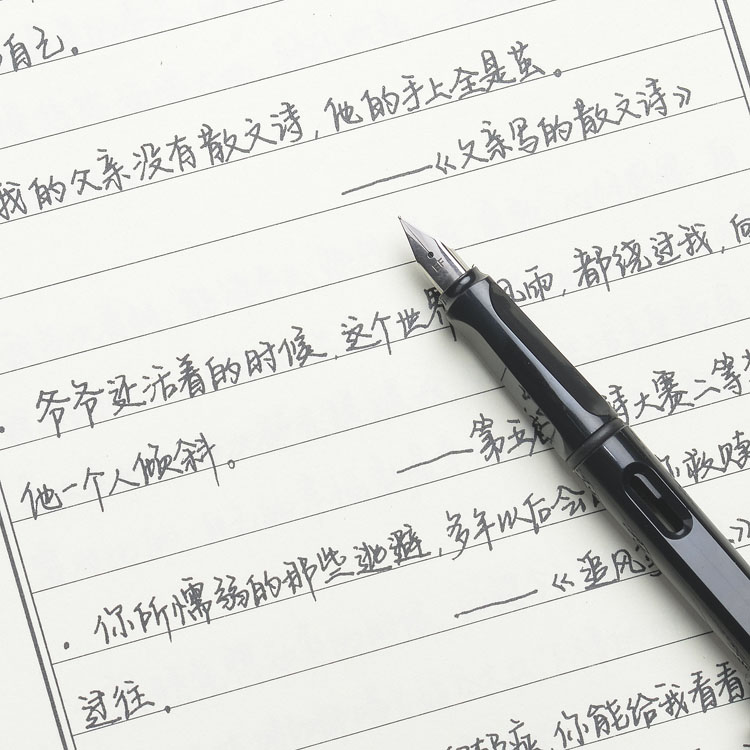 自己。
我的父亲没有散文诗，他的手上全是茧。
——《父亲写的散文诗》
爷爷还活着的时候，这个世界 风雨，都绕过我，向
他一个人倾斜。
——第五 诗大赛二等
· 你所懦弱的那些逃避，多年以后会 敢赎
——《追风
过往。
你能给我看看